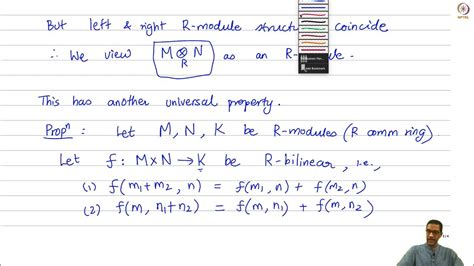 But left & right R-module structures coincide
∴ We view M ⊗_R N as an R-module.
This has another universal property.
Propⁿ: Let M, N, K be R-modules (R comm ring).
Let f: M×N → K be R-bilinear, i.e.,
(1) f(m₁+m₂, n) = f(m₁, n) + f(m₂, n)
(2) f(m, n₁+n₂) = f(m, n₁) + f(m, n₂)